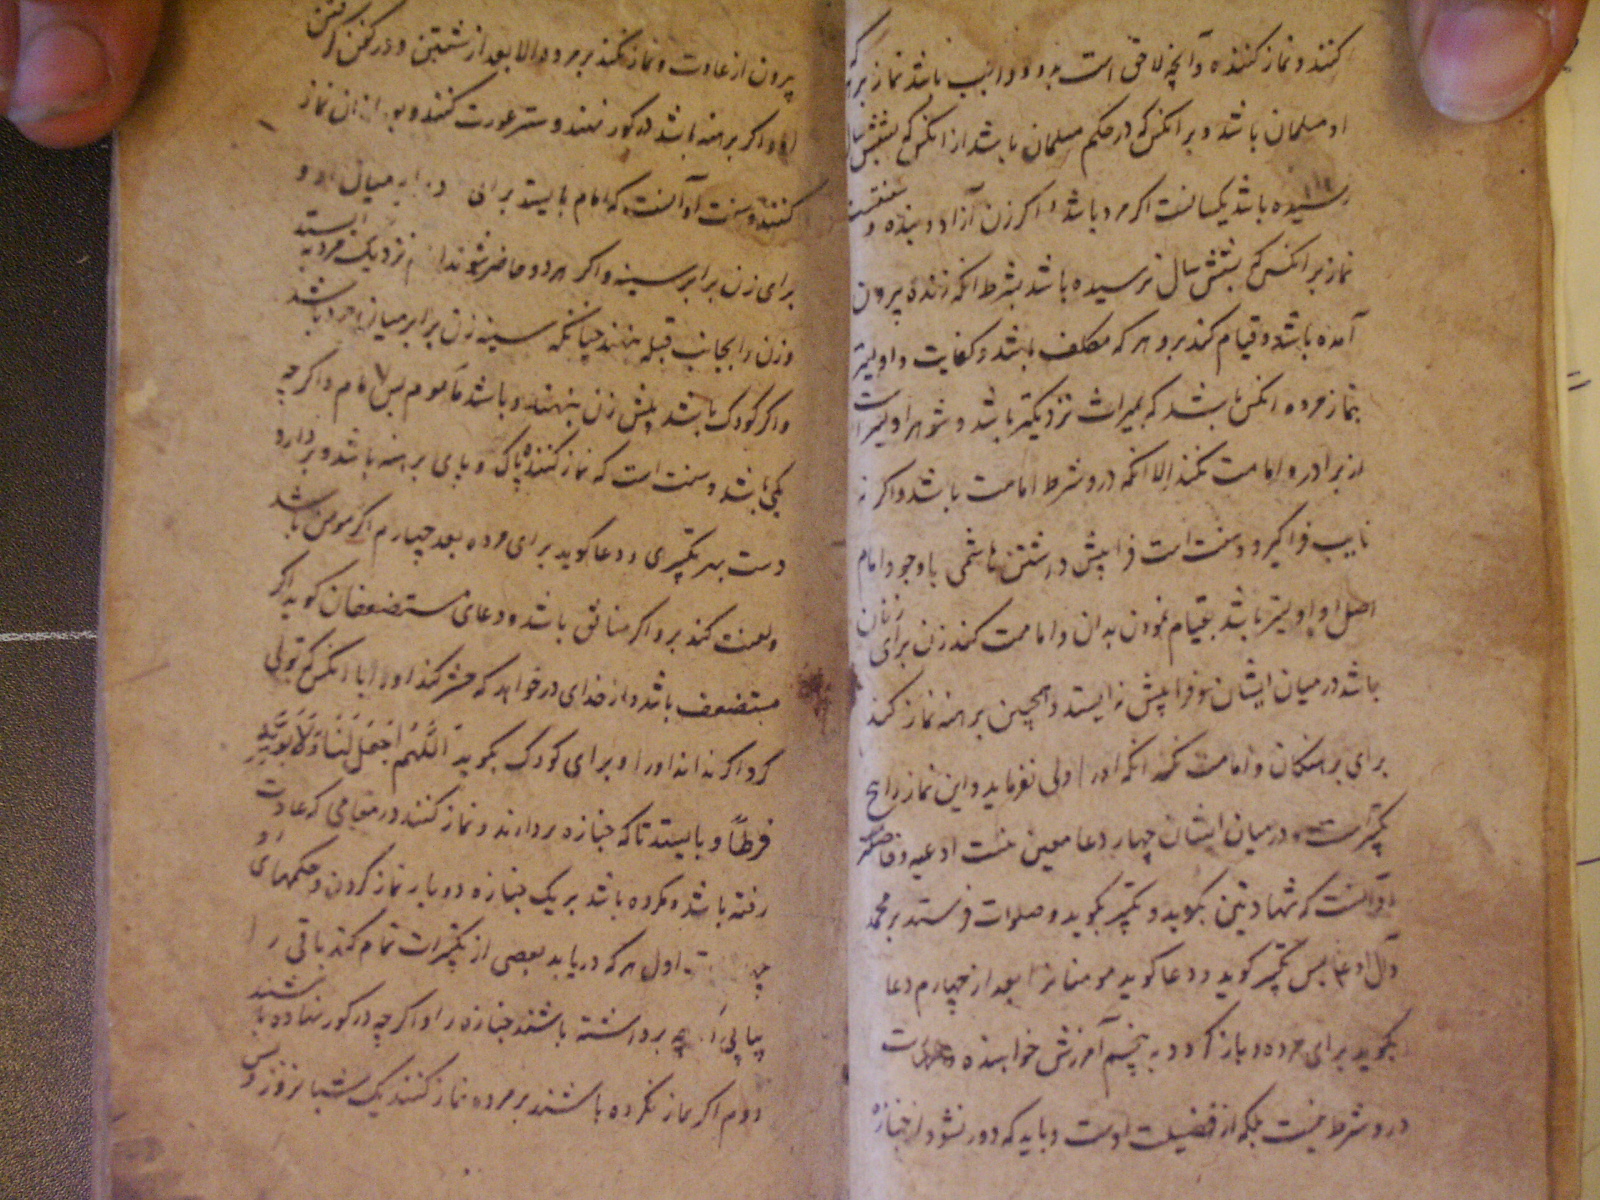 کنند و نماز کننده و آنچه لاحق است بدو و واجب باشد نماز بر
او مسلمان باشد و بر انکس که در حکم مسلمان باشد از انکس که بشش سال
رسیده باشد یکسانست اکر مرد باشد اکر زن آزاد و بنده و سنتست
نماز بر انکس که بشش سال نرسیده باشد بشرط انکه زنده بیرون
آمده باشد و قیام کند برو هر که مکلف باشد و کفایت و اولیتر
بنماز مرده انکس باشد که بمیراث نزدیکتر باشد و شوهر اولیتر است
از برادر و امامت نکند الا انکه درو شرط امامت باشد و اکر نه
نایب فرا کیرد و سنت است فرا پیش داشتن هاشمی با وجود امام
اصل او اولیتر باشد بقیام نمودن بدان و امامت کند زن برای زنان
باشد در میان ایشان و فرا پیش نه ایستد و همچنین برهنه نماز کند
برای برهنکان و امامت نکند انکه اورا ولی نفرماید و این نماز پنج
تکبیرات است در میان ایشان چهار دعا معین نیست ادعیه و فاضلتر
آنست که شهادتین بکوید و تکبیر بکوید و صلوات فرستد بر محمد
و آل او پس تکبیر کوید و دعا کوید مومنانرا بعد از چهارم دعا
بکوید برای مرده و باز کردد به پنجم آمرزش خواهنده
درو شرط نیست بلکه از فضیلت اوست و باید که دور نشود از جنازه
بیرون از عادت و نماز نکنند بر مرده الا بعد از شستن و در کفن کرفتن
و اکر برهنه باشد در کور نهند و ستر عورت کنند و بعد از ان نماز
کنند و سنت او آنست که امام بایستد برای میان او و
برای زن برابر سینه و اکر هر دو حاضر شوند نزدیک مرد بایستد
و زن را بجانب قبله نهند چنانکه سینه زن برابر میان مرد باشد
و اکر کودک باشد پیش زن بنهند و باشد ماموم پس امام و اکر چه
یکی باشد و سنت است که نماز کننده پاک و پای برهنه باشد و بردارد
دست بهر تکبیری و دعا کوید برای مرده بعد چهارم اکر مومن باشد
و لعنت کند برو اکر منافق باشد و دعای مستضعفان کوید اکر
مستضعف باشد و از خدای در خواهد که حشر کند اورا با انکس که تولی
کرد اکر نداند اورا و برای کودک بکوید اللهم اجعل لنا ولابویه
فرطاً و بایستد تا که جنازه بردارند و نماز کنند در مقامی که عادت
رفته باشد و مکروه باشد بر یک جنازه دو بار نماز کردن و حکمهای او
اول هر که دریابد بعضی از تکبیرات تمام کند باقی را
پیاپی برداشته باشند جنازه را و اکر چه در کور نهاده باشند
دوم اکر نماز نکرده باشند بر مرده نماز کنند یک شبانروز و بس